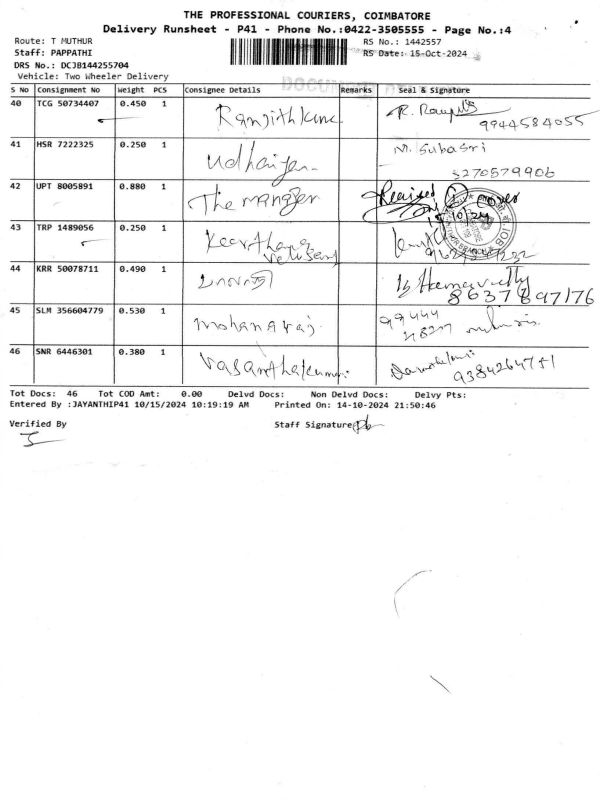 THE PROFESSIONAL COURIERS, COIMBATORE
Delivery Runsheet - P41 - Phone No.:0422-3505555 - Page No.:4
Route: T MUTHUR RS No.: 1442557
Staff: PAPPATHI RS Date: 15-Oct-2024
DRS No.: DCJB144255704
Vehicle: Two Wheeler Delivery
S No Consignment No Weight PCS Consignee Details Remarks Seal & Signature
40 TCG 50734407 0.450 1 9944584055
41 HSR 7222325 0.250 1 Udhaiyan M. Subasri
42 UPT 8005891 0.880 1 The manager Received
43 TRP 1489056 0.250 1 Keerthana
44 KRR 50078711 0.490 1 8637 897176
45 SLM 356604779 0.530 1 mohanaraj 99444
46 SNR 6446301 0.380 1 Vasanthakumar
Tot Docs: 46 Tot COD Amt: 0.00 Delvd Docs: Non Delvd Docs: Delvy Pts:
Entered By :JAYANTHIP41 10/15/2024 10:19:19 AM Printed On: 14-10-2024 21:50:46
Verified By Staff Signature